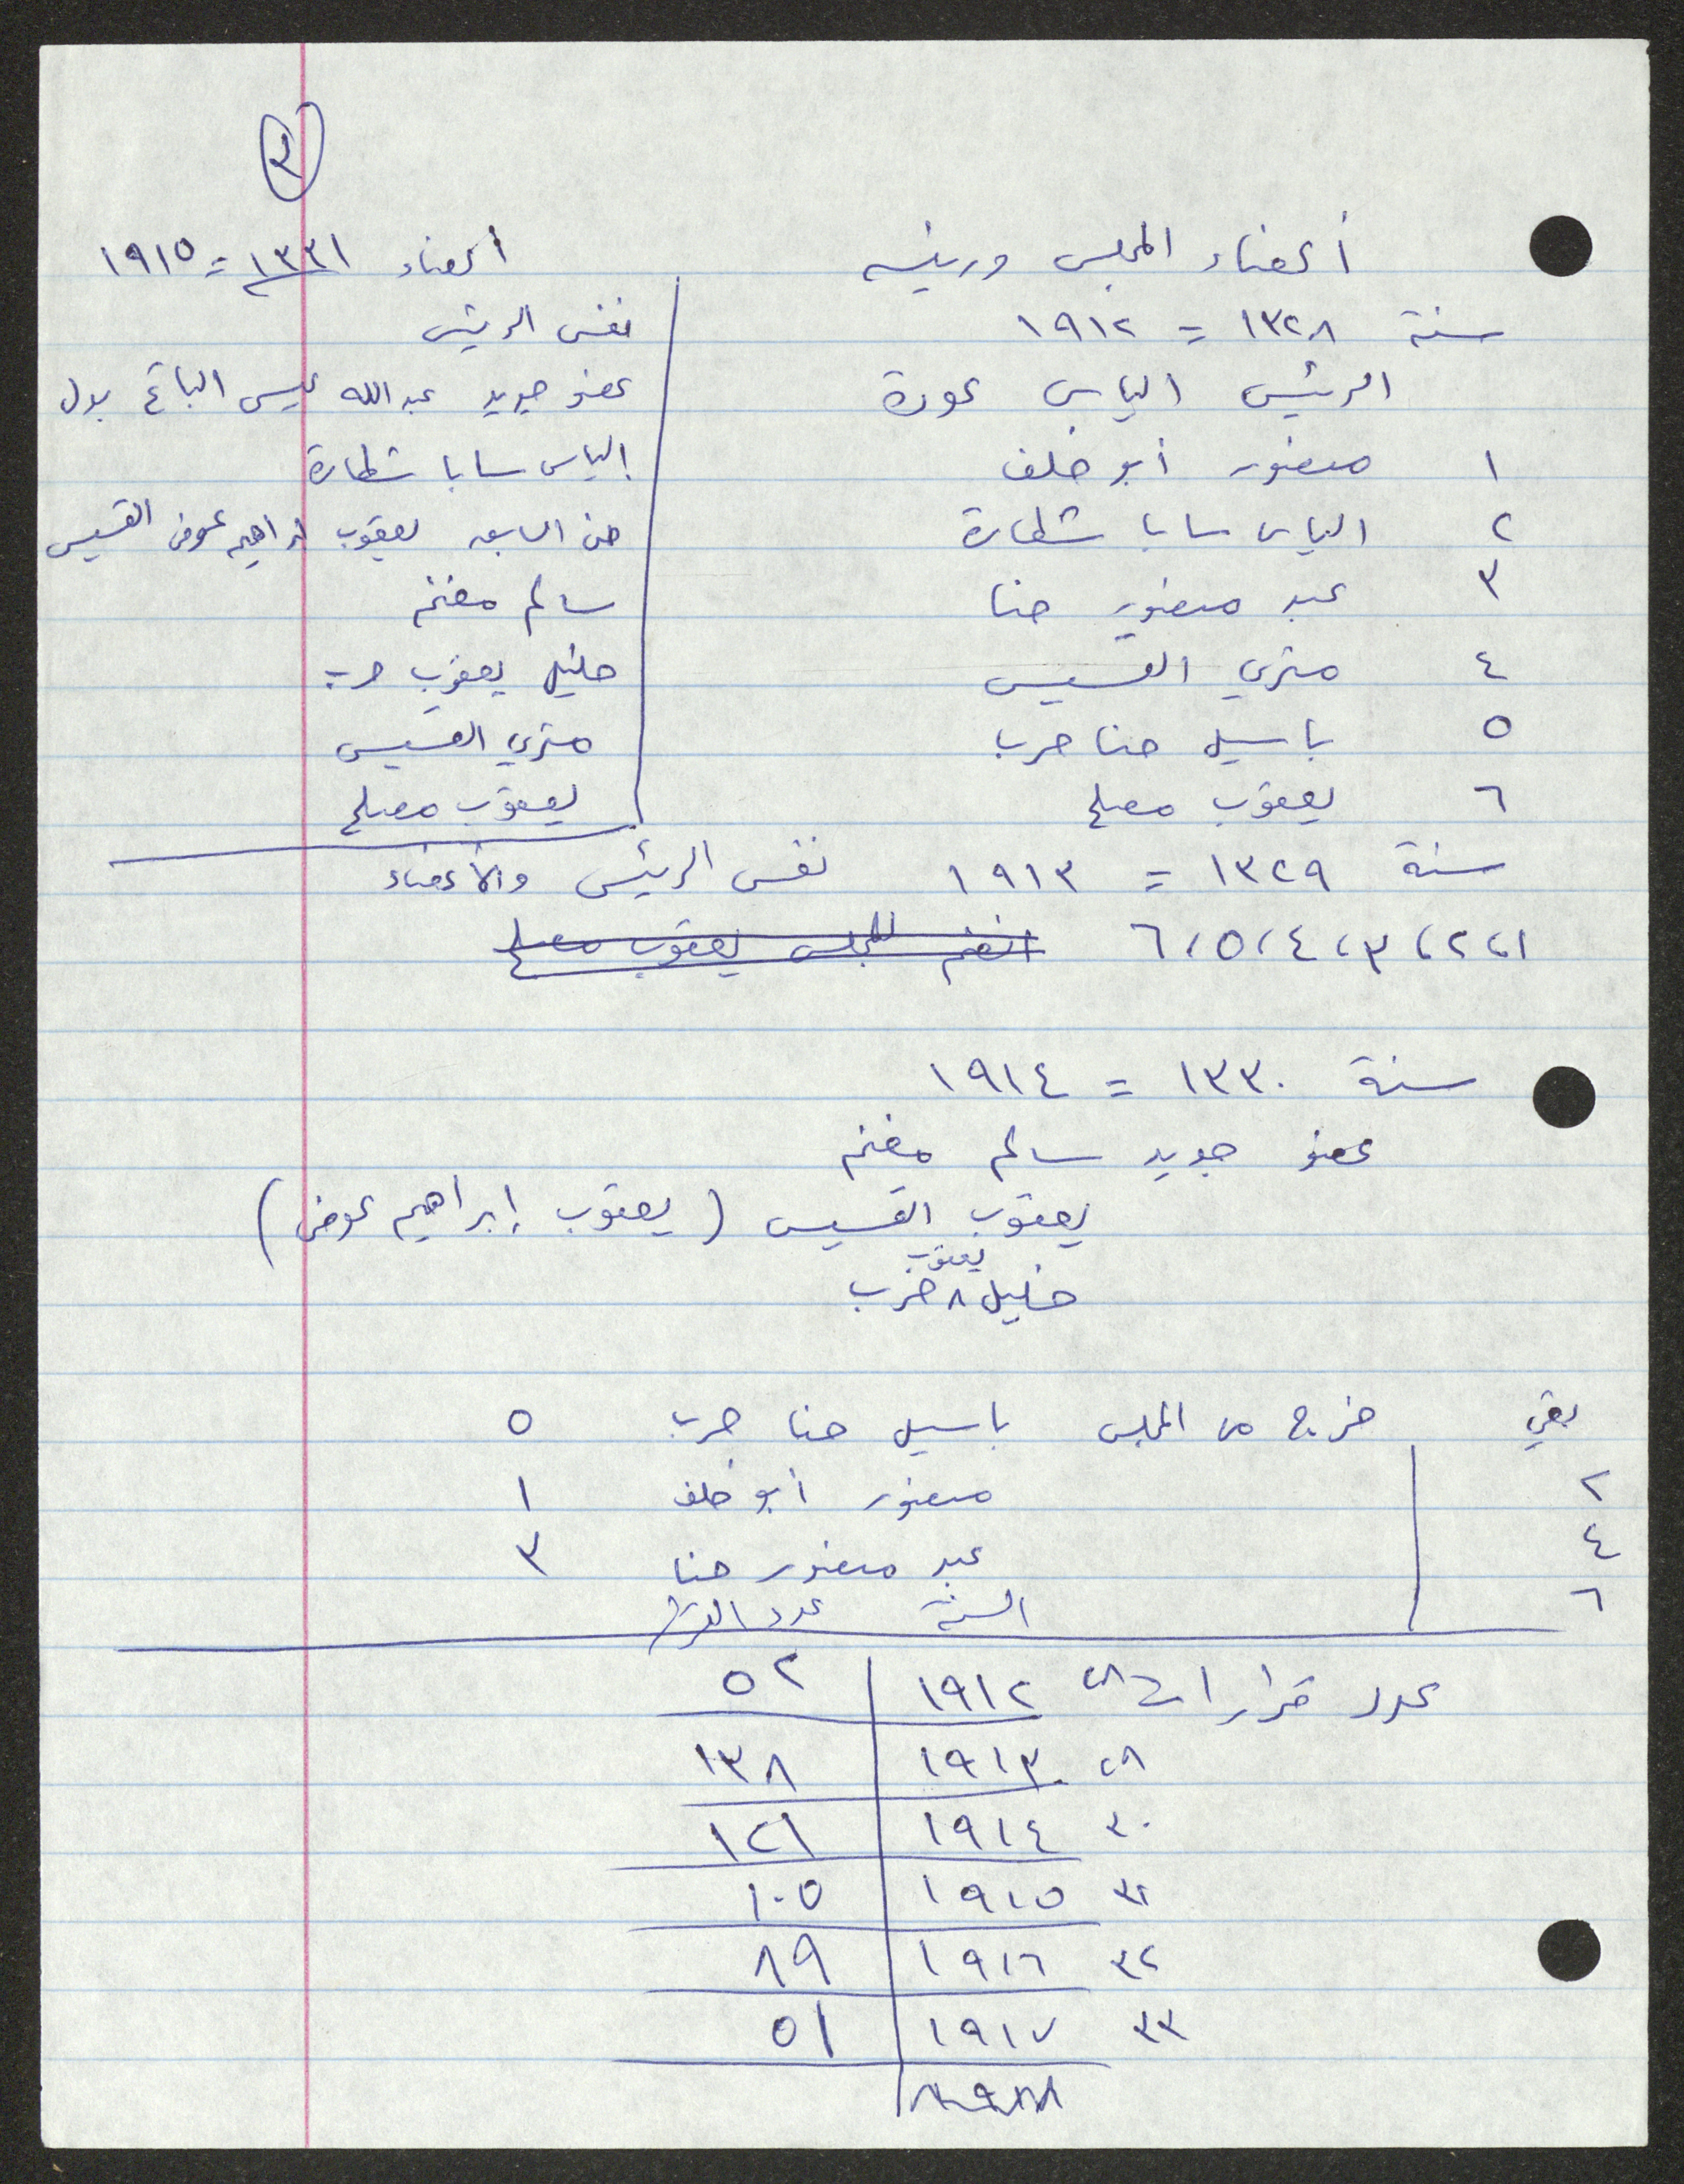 ٣
أعضاء المجلس ورئيسه
سنة ١٣٢٨ = ١٩١٢
الرئيس الياس عودة
١ منصور أبو خلف
٢ الياس سابا شطارة
٣ عبد منصور حنا
٤ متري القسيس
٥ باسيل حنا حرب
٦ يعقوب مصلح
أعضاء ١٣٣١ = ١٩١٥
نفس الرئيس
عضو جديد عبد الله عيسى الباع بدل
الياس سابا شطارة
من السابعه يعقوب ابراهيم عوض القسيس
سالم مغنم
خليل يعقوب حرب
متري القسيس
يعقوب مصلح
سنة ١٣٢٩ = ١٩١٣ نفس الرئيس والأعضاء
١، ٢، ٣، ٤، ٥، ٦ انضم للمجلس يعقوب مصلح
سنة ١٣٣٠ = ١٩١٤
عضو جديد سالم مغنم
يعقوب القسيس (يعقوب إبراهيم عوض)
خليل ٨ حرب
يعقوب
بقي خرج من المجلس باسيل حنا حرب ٥
٢ منصور أبو خلف ١
٤ عبد منصور حنا ٣
٦ السنة عدد القرار
عدد قرارات ٢٨ ١٩١٢ ٥٢
٢٩ ١٩١٣ ١٣٨
٣٠ ١٩١٤ ١٢١
٣١ ١٩١٥ ١٠٥
٣٢ ١٩١٦ ٨٩
٣٣ ١٩١٧ ٥١